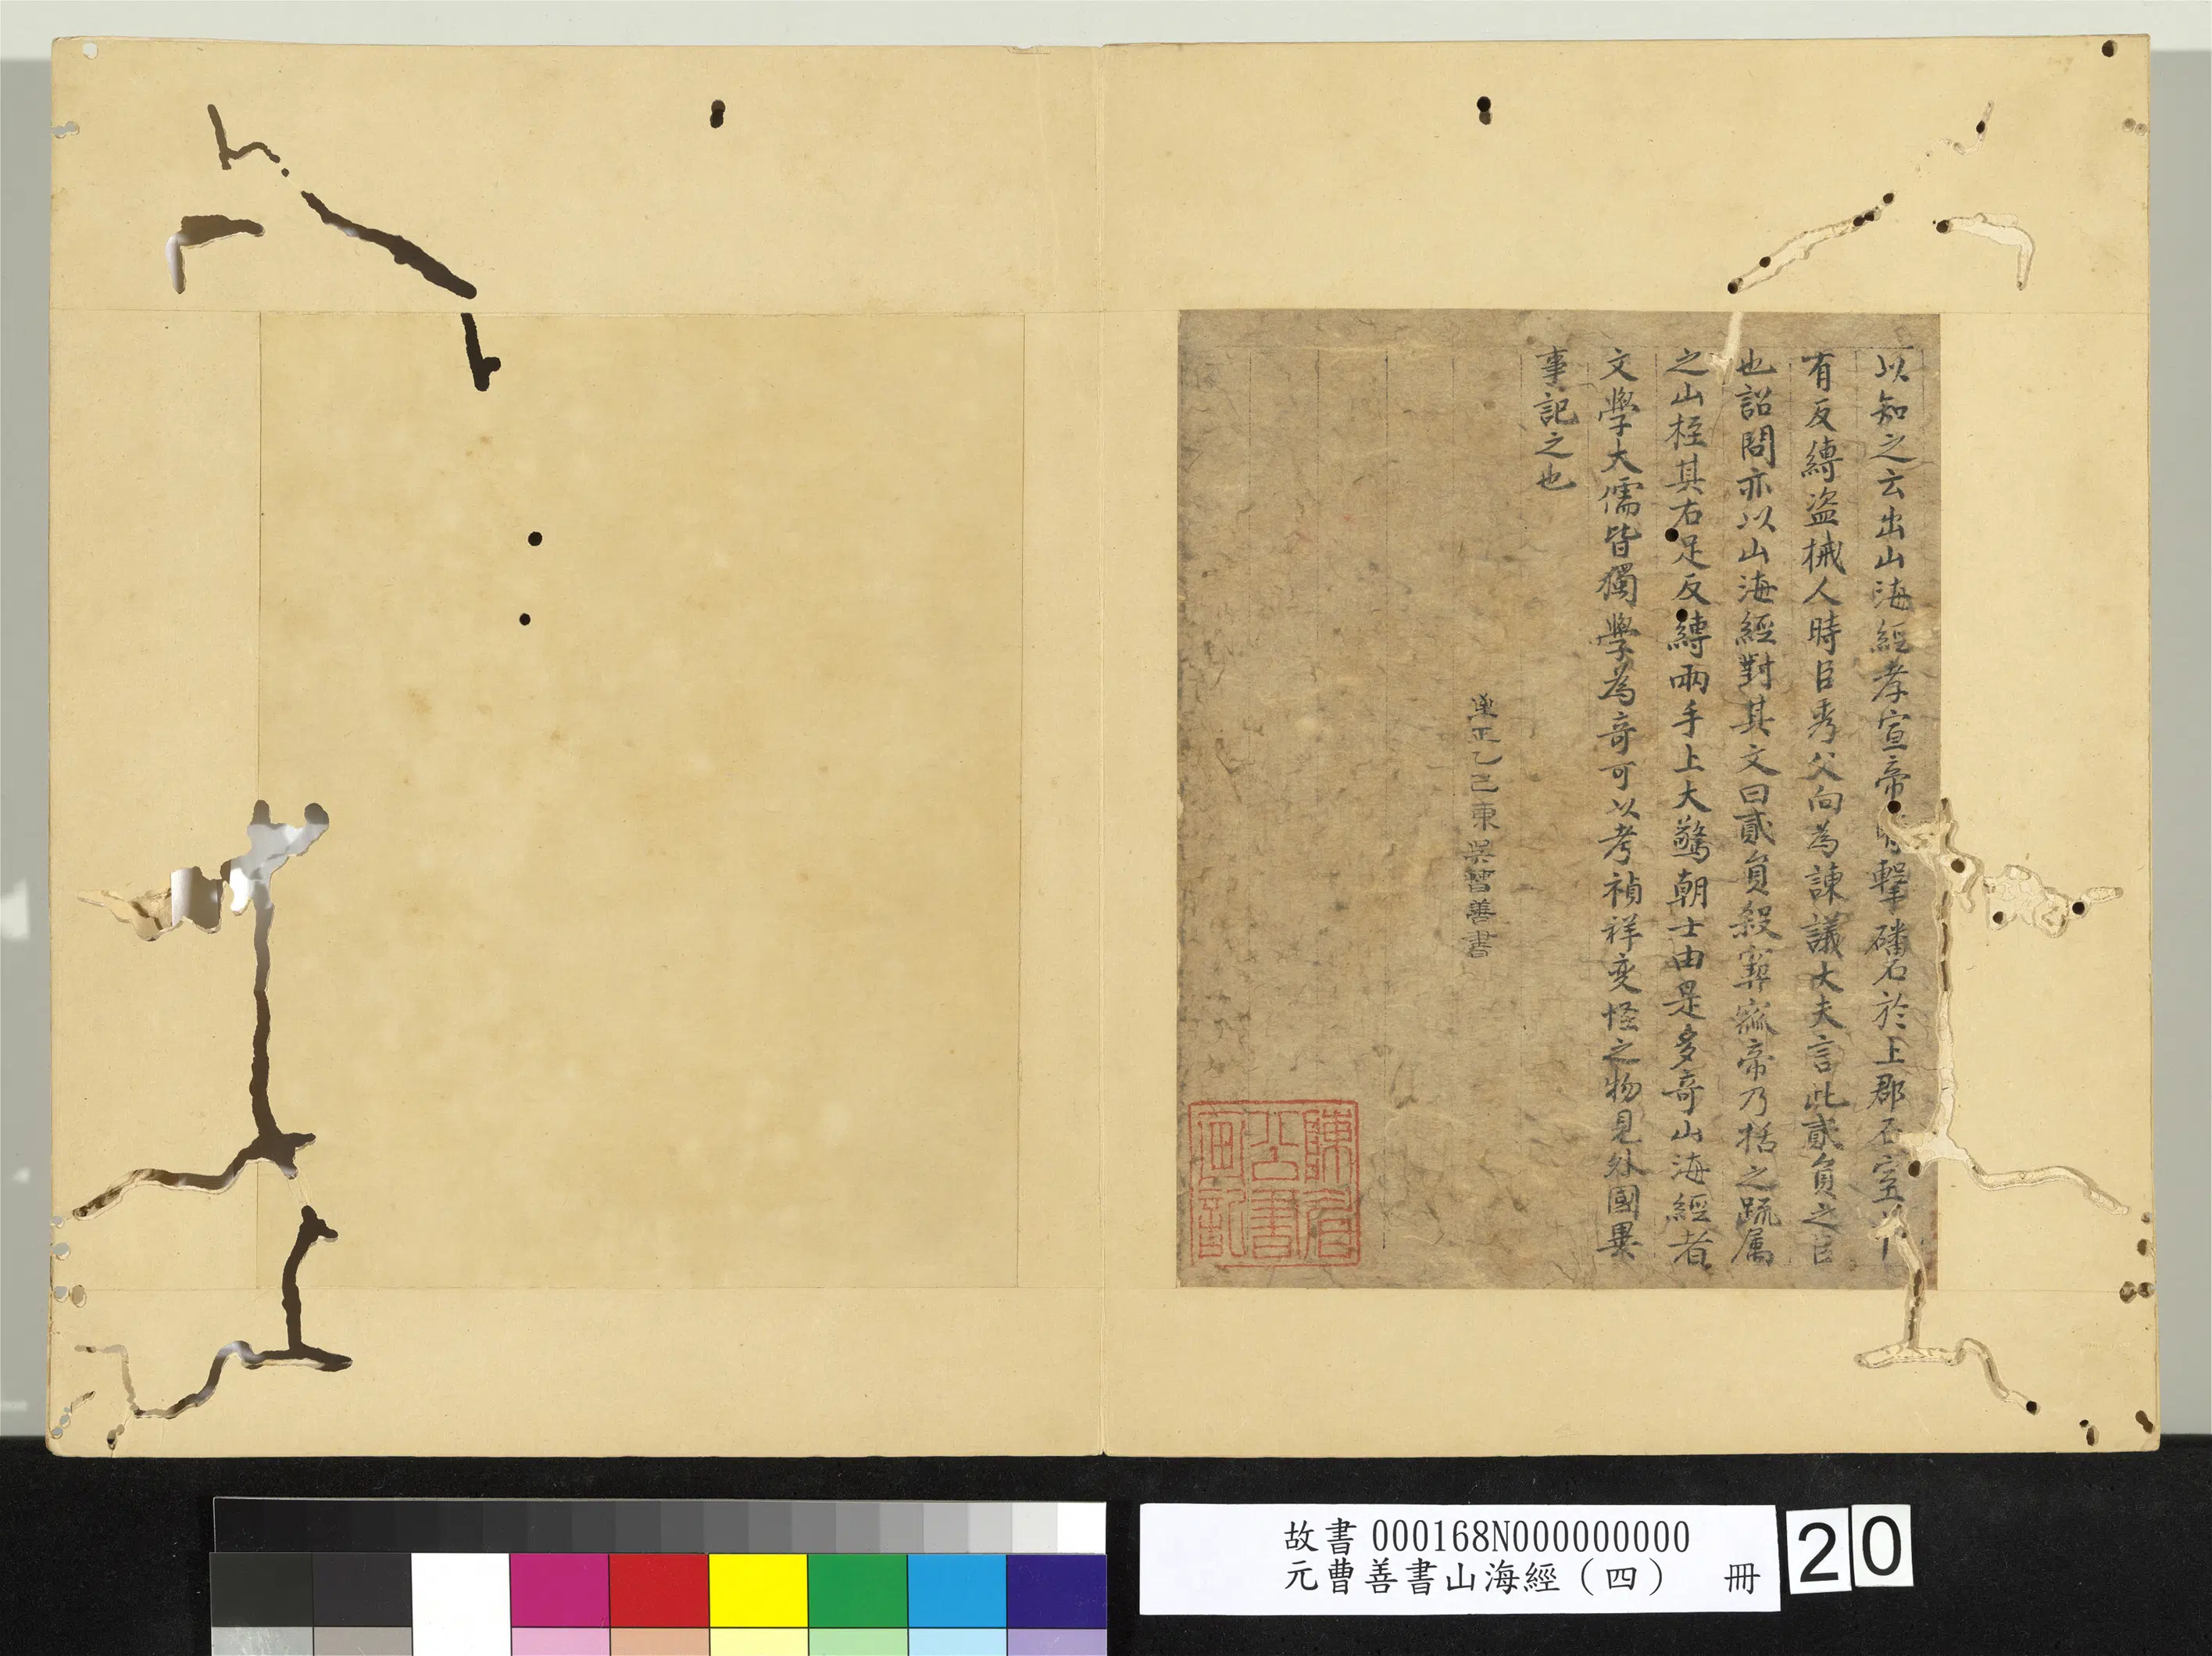 以知之云出山海經孝宣帝時擊磻石於上郡石室中
有反縛盗械人時臣秀父向為諫議大夫言此貳負之臣
也詔問亦以山海經對其文曰貳負殺窫窳帝乃梏之疏属
之山桎其右足反縛兩手上大驚朝士由是多奇山海經者
文學大儒皆獨學為奇可以考禎祥变怪之物見外國異
事記之也
至正乙巳東吳曹善書
故書000168N000000000
元曹善書山海經（四） 冊
20